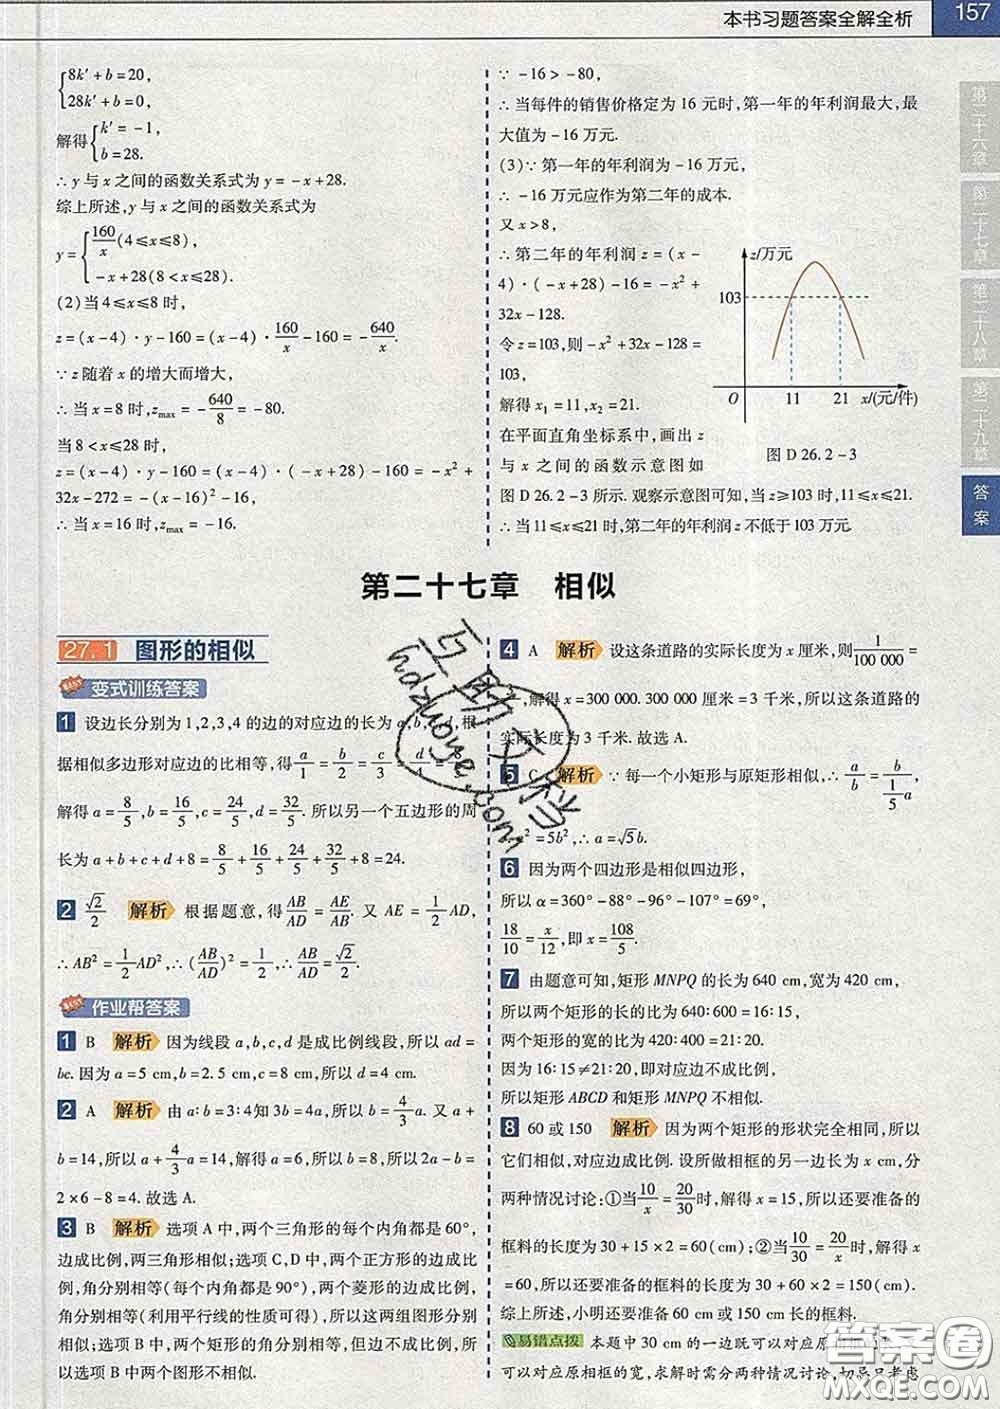 本书习题答案全解全析
157
第二十六章
第二十七章
第二十八章
第二十九章
答案
{8k′+b=20,
28k′+b=0,
解得{k′=-1,
b=28.
∴y与x之间的函数关系式为y=-x+28.
综上所述,y与x之间的函数关系式为
y={160/x(4≤x≤8),
-x+28(8<x≤28).
(2)当4≤x≤8时,
z=(x-4)·y-160=(x-4)·160/x-160=-640/x.
∵z随着x的增大而增大,
∴当x=8时,zmax=-640/8=-80.
当8<x≤28时,
z=(x-4)·y-160=(x-4)·(-x+28)-160=-x²+
32x-272=-(x-16)²-16,
∴当x=16时,zmax=-16.
∵-16>-80,
∴当每件的销售价格定为16元时,第一年的年利润最大,最
大值为-16万元.
(3)∵第一年的年利润为-16万元,
∴-16万元应作为第二年的成本.
又x>8,
∴第二年的年利润z=(x-
4)·(-x+28)-16=-x²+
32x-128.
令z=103,则-x²+32x-128=
103,
解得x₁=11,x₂=21.
在平面直角坐标系中,画出z
与x之间的函数示意图如
图D26.2-3所示.观察示意图可知,当z≥103时,11≤x≤21.
∴当11≤x≤21时,第二年的年利润z不低于103万元.
z/万元
103
O 11 21 x/(元/件)
图D26.2-3
第二十七章 相似
27.1 图形的相似
变式训练答案
1 设边长分别为1,2,3,4的边的对应边的长为a,b,c,d,根
据相似多边形对应边的比相等,得a/1=b/2=c/3=d/4=8/5,
解得a=8/5,b=16/5,c=24/5,d=32/5.所以另一个五边形的周
长为a+b+c+d+8=8/5+16/5+24/5+32/5+8=24.
2 √2/2 解析 根据题意,得AB/AD=AE/AB.又AE=1/2AD,
∴AB²=1/2AD²,∴(AB/AD)²=1/2,∴AB/AD=√2/2.
作业帮答案
1 B 解析 因为线段a,b,c,d是成比例线段,所以ad=
bc.因为a=5 cm,b=2.5 cm,c=8 cm,所以d=4 cm.
2 A 解析 由a:b=3:4知3b=4a,所以b=4/3a.又a+
b=14,所以a+4/3a=14,解得a=6,所以b=8,所以2a-b=
2×6-8=4.故选A.
3 B 解析 选项A中,两个三角形的每个内角都是60°,
边成比例,两三角形相似;选项C,D中,两个正方形的边成比
例,角分别相等(每个内角都是90°),两个菱形的边成比例,
角分别相等(利用平行线的性质可得),所以这两组图形分别
相似;选项B中,两个矩形的角分别相等,但边不成比例,所
以选项B中两个图形不相似.
4 A 解析 设这条道路的实际长度为x厘米,则1/100 000=
,解得x=300 000.300 000厘米=3千米,所以这条道路的
实际长度为3千米.故选A.
5 C 解析 ∵每一个小矩形与原矩形相似,∴a/b=b/(1/5a)
a²=5b²,∴a=√5b.
6 因为两个四边形是相似四边形,
所以α=360°-88°-96°-107°=69°,
18/10=x/12,即x=108/5.
7 由题意可知,矩形MNPQ的长为640 cm,宽为420 cm,
所以两个矩形的长的比为640:600=16:15,
两个矩形的宽的比为420:400=21:20.
因为16:15≠21:20,即对应边不成比例,
所以矩形ABCD和矩形MNPQ不相似.
8 60或150 解析 因为两个矩形的形状完全相同,所以
它们相似,对应边成比例.设所做相框的另一边长为x cm,分
两种情况讨论:①当10/x=20/30时,解得x=15,所以还要准备的
框料的长度为30+15×2=60(cm);②当10/30=20/x时,解得x=
60,所以还要准备的框料的长度为30+60×2=150(cm).
综上所述,小明还要准备60 cm或150 cm长的框料.
易错点拨 本题中30 cm的一边既可以对应原
可以对应原相框的宽,求解时需分两种情况讨论,切忌只考虑
互助文档
hdzuoye.com
答案圈
MXQE.COM